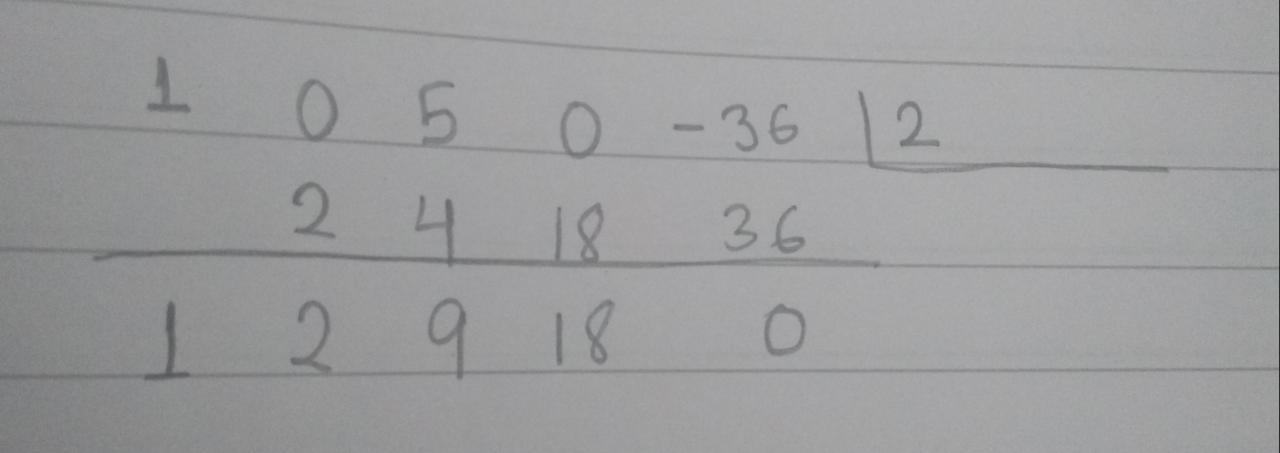 1 0 5 0 -36 | 2
2 4 18 36
1 2 9 18 0